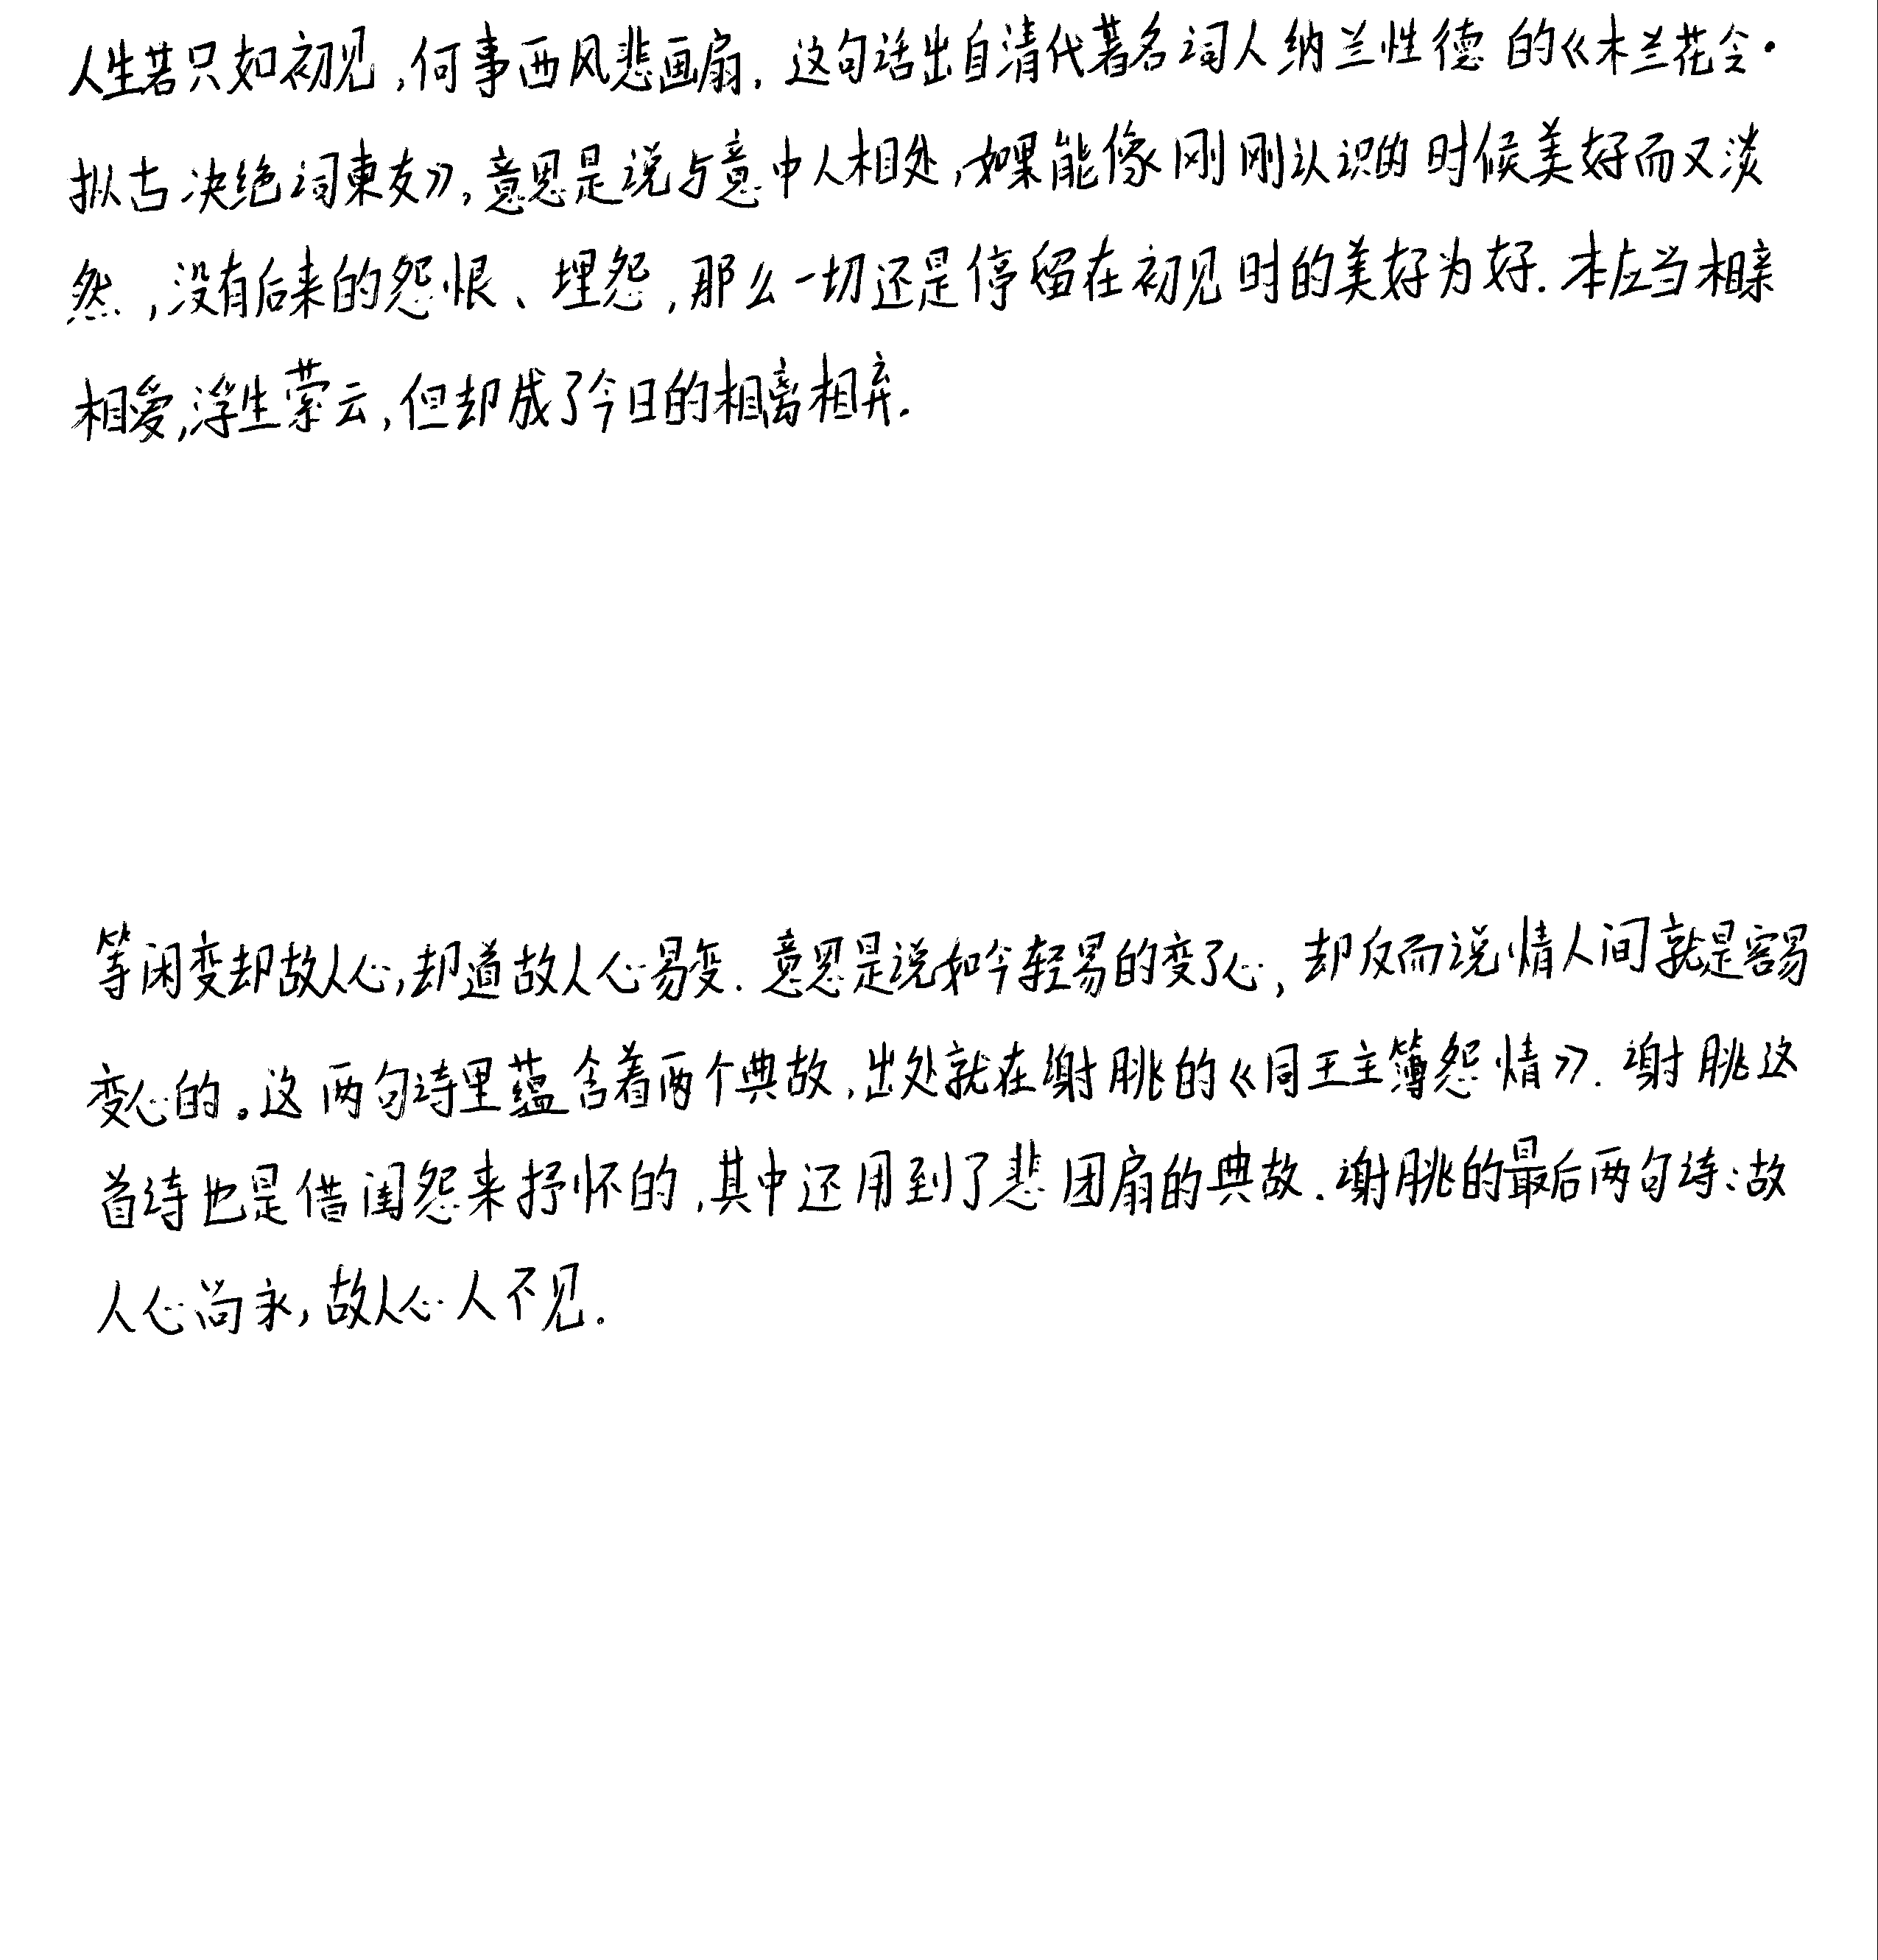 人生若只如初见,何事西风悲画扇.这句话出自清代著名词人纳兰性德的《木兰花令·
拟古决绝词柬友》,意思是说与意中人相处,如果能像刚刚认识的时候美好而又淡
然,没有后来的怨恨、埋怨,那么一切还是停留在初见时的美好为好.本应当相亲
相爱,浮生萦云,但却成了今日的相离相弃.
等闲变却故人心,却道故人心易变.意思是说如今轻易的变了心,却反而说情人间就是容易
变心的。这两句诗里蕴含着两个典故,出处就在谢朓的《同王主簿怨情》.谢朓这
首诗也是借闺怨来抒怀的,其中还用到了悲团扇的典故.谢朓的最后两句诗:故
人心尚永,故心人不见.